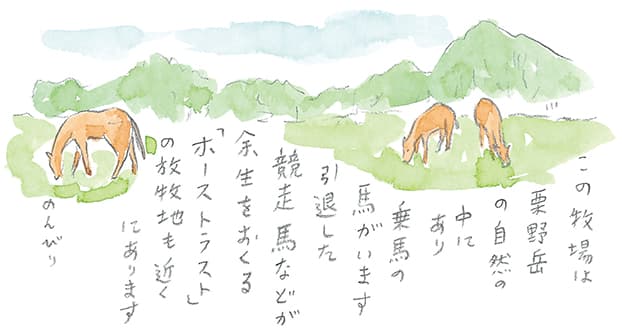 この牧場は
栗野岳
の自然の
中に
あり
乗馬の
馬がいます
引退した
競走馬などが
余生をおくる
「ホーストラスト」
の放牧地も近く
にあります
のんびり